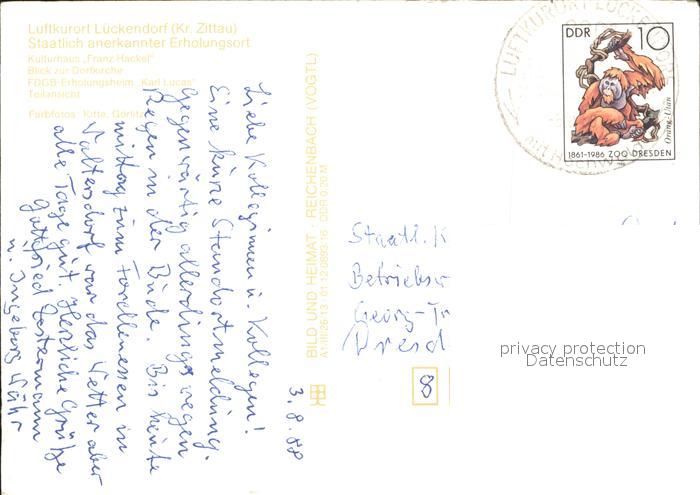 Luftkurort Lückendorf (Kr. Zittau)
Staatlich anerkannter Erholungsort
Kulturhaus „Franz Hackel“
Blick zur Dorfkirche
FDGB-Erholungsheim „Karl Lucas“
Teilansicht
Farbfotos: Kitte, Görlitz
Liebe Kolleginnen u. Kollegen!
Eine kurze Standortmeldung.
Gegenwärtig allerdings wegen
Regen in der Bude. Bis heute
mittag zum Forellenessen in
Waltersdorf war das Wetter aber
alle Tage gut. Herzliche Grüße
Gottfried
u. Ingeborg
3.8.88
BILD UND HEIMAT · REICHENBACH (VOGTL)
A1/III/26/13 01 12 0893/16 DDR 0,20 M
LUFTKURORT LÜCKENDORF
DDR 10
Orang-Utan
1861-1986 ZOO DRESDEN
Staatl. K
Betriebs
Georg-Tr
Dresd
8
privacy protection
Datenschutz